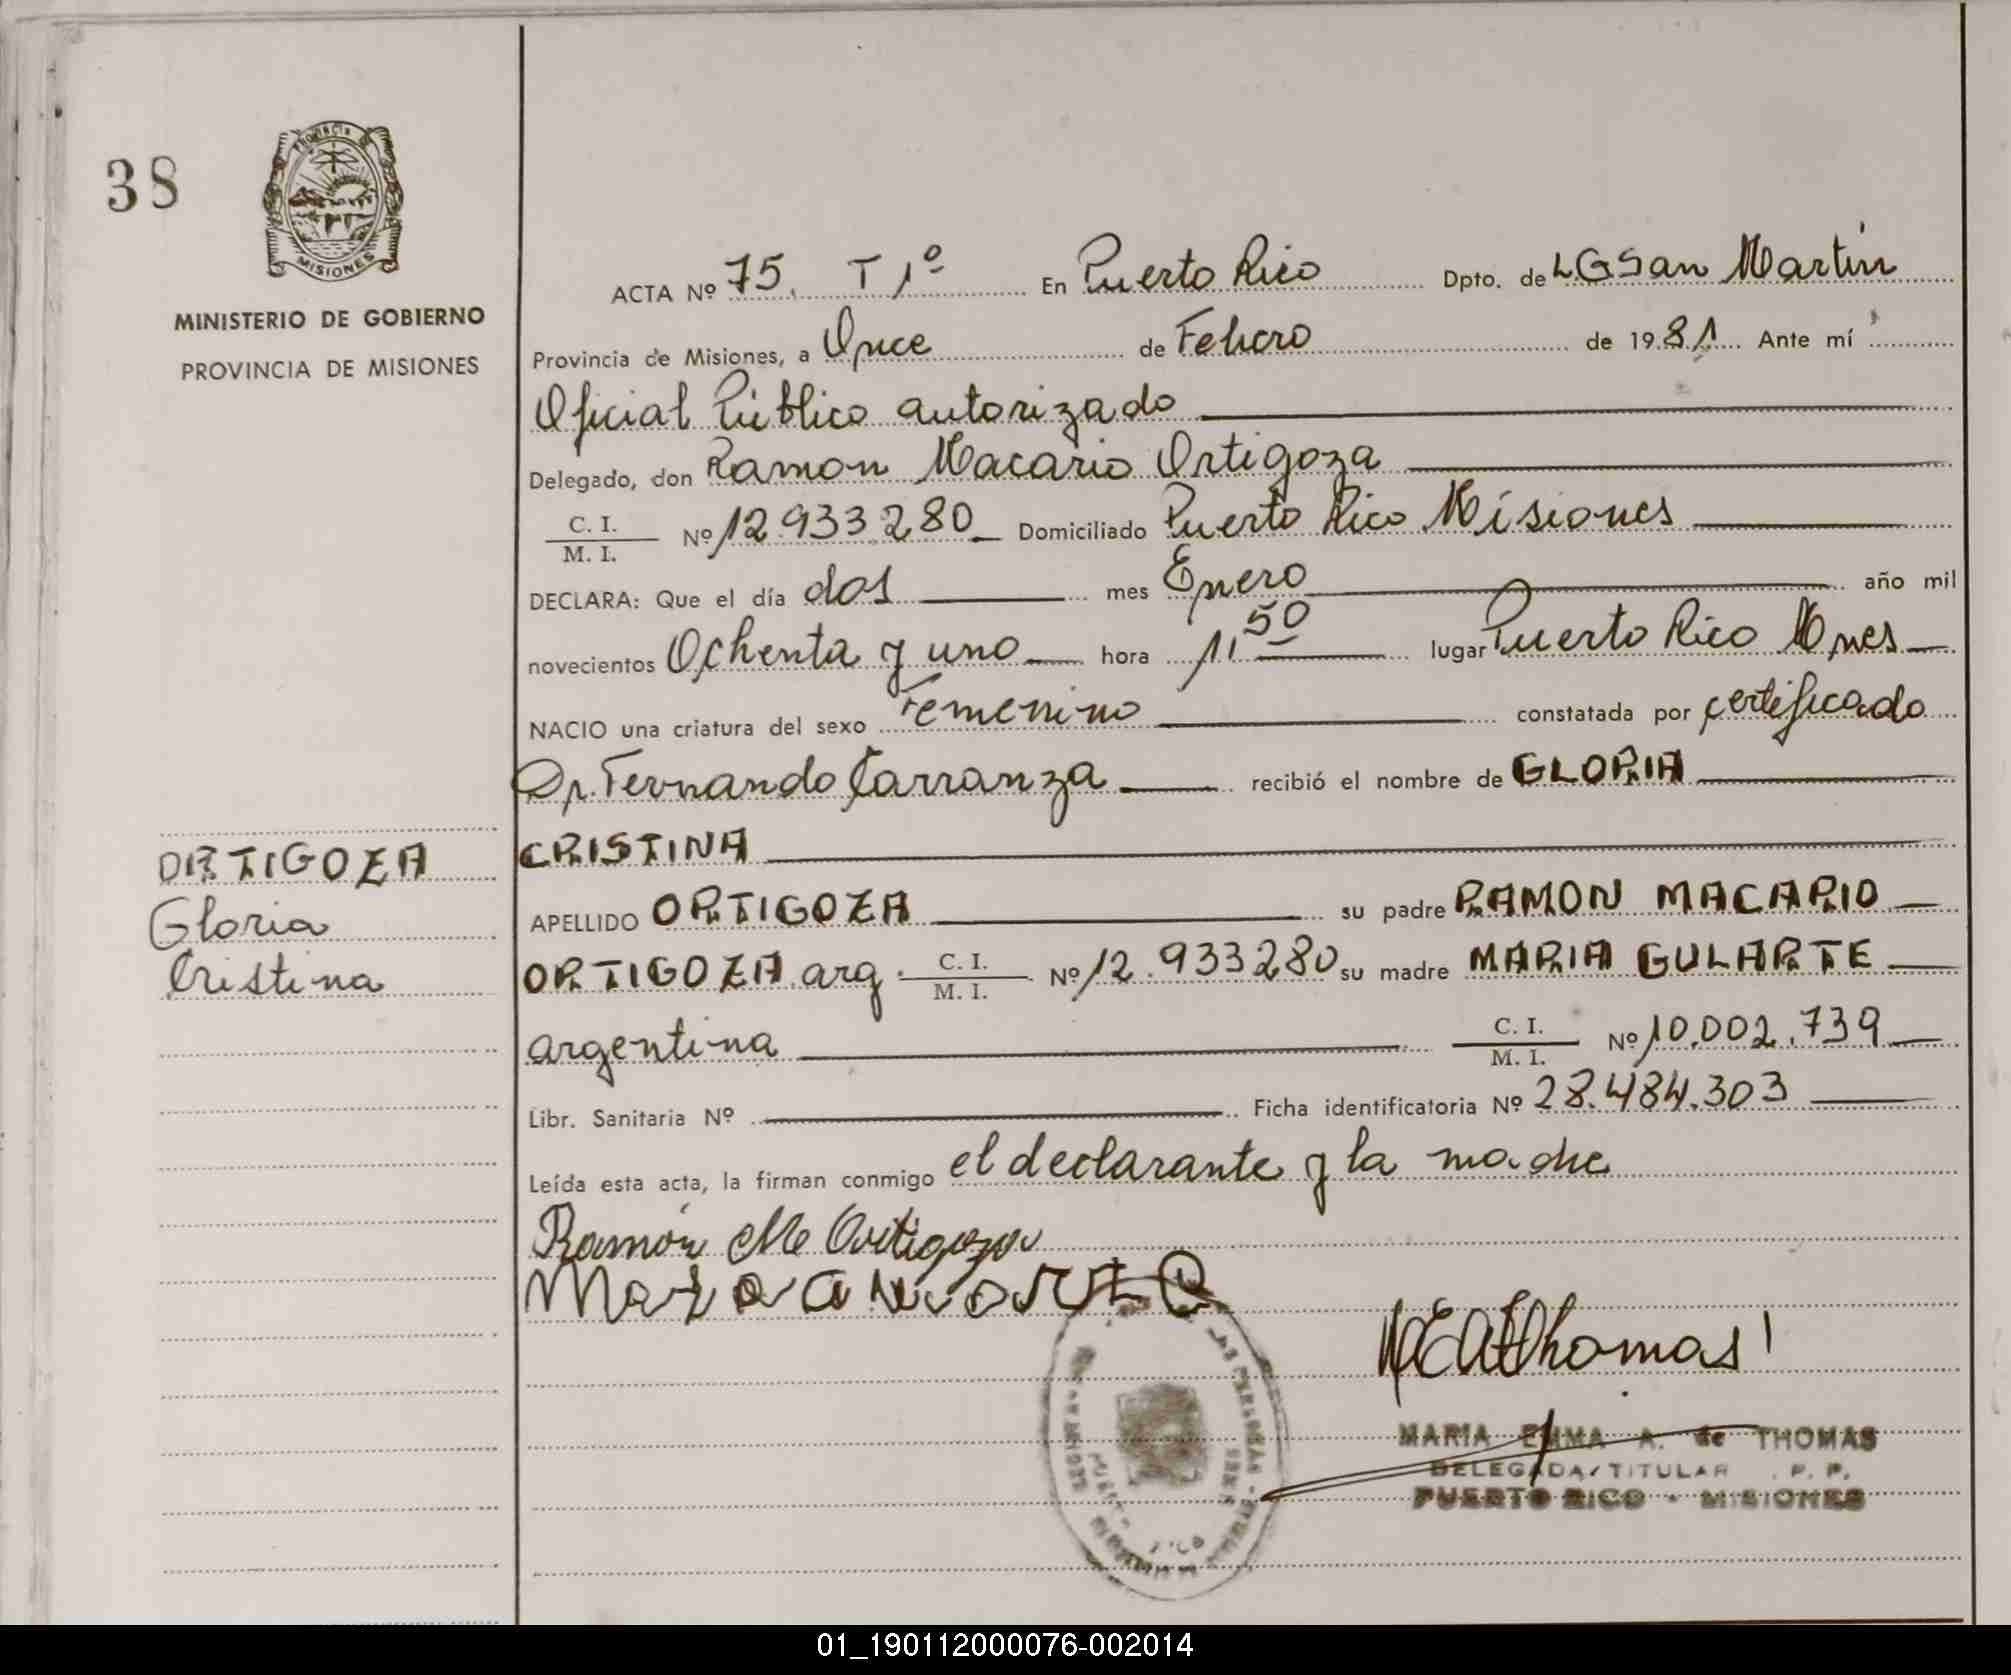 38
PROVINCIA
MISIONES
MINISTERIO DE GOBIERNO
PROVINCIA DE MISIONES
ORTIGOZA
Gloria
Cristina
ACTA Nº 75. T 1º En Puerto Rico Dpto. de LGSan Martín
Provincia de Misiones, a Once de Febrero de 1981 Ante mí
Oficial Público autorizado
Delegado, don Ramon Macario Ortigoza
C. I.
M. I. Nº 12.933.280 Domiciliado Puerto Rico Misiones
DECLARA: Que el día dos mes Enero año mil
novecientos Ochenta y uno hora 11 50 lugar Puerto Rico Mnes
NACIO una criatura del sexo Femenino constatada por certificado
Dr. Fernando Carranza recibió el nombre de GLORIA
CRISTINA
APELLIDO ORTIGOZA su padre RAMON MACARIO
ORTIGOZA arg. C. I. M. I. Nº 12.933280 su madre MARIA GULARTE
argentina C. I. M. I. Nº 10.002.739
Libr. Sanitaria Nº Ficha identificatoria Nº 28.484.303
Leída esta acta, la firman conmigo el declarante y la madre
Ramón Ortigoza
Thomas
MARIA EMMA A. de THOMAS
DELEGADA TITULAR P. P.
PUERTO RICO - MISIONES
01_190112000076-002014